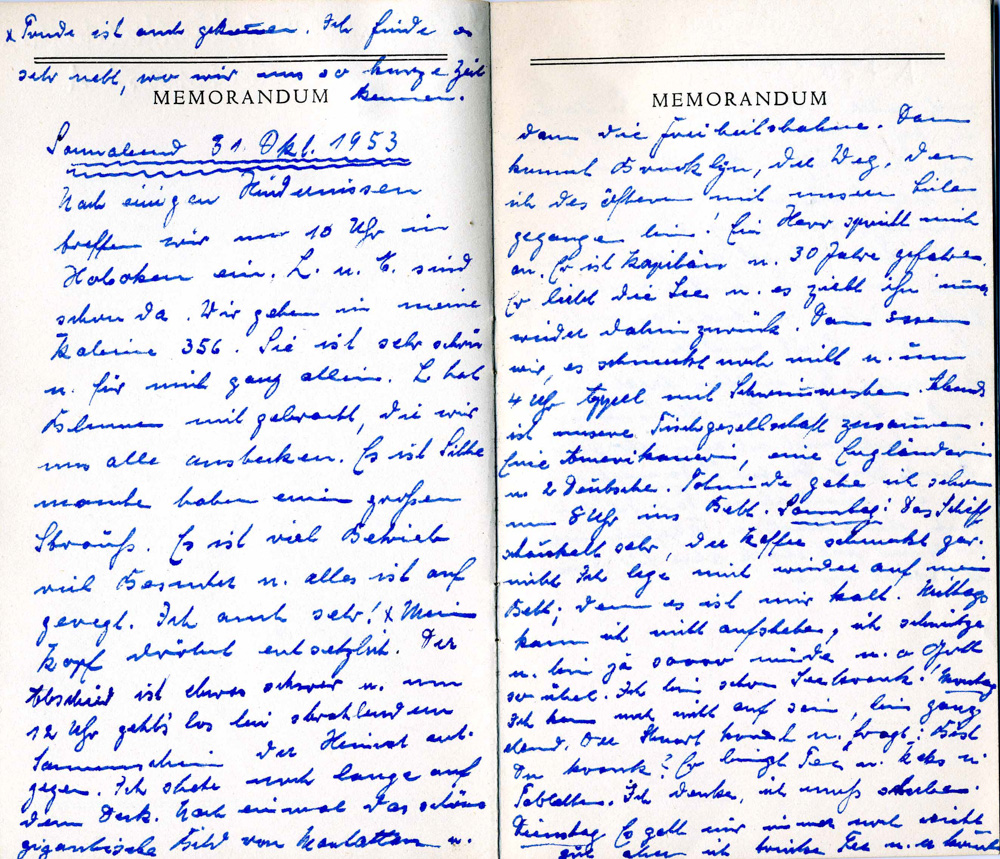 x Trude ist auch gekommen. Ich finde es
sehr nett, wo wir uns so kurze Zeit
kennen.
MEMORANDUM
Sonnabend 31. Okt. 1953
Nach einigen Hindernissen
treffen wir um 10 Uhr in
Hoboken ein. L. u. K. sind
schon da. Wir gehen in meine
Kabine 356. Sie ist sehr schön
u. für mich ganz allein. L hat
Blumen mitgebracht, die wir
uns alle anstecken. Es ist Sitte
manche haben einen großen
Strauß. Es ist viel Betrieb
viel Besucher u. alles ist auf
geregt. Ich auch sehr! x Mein
Kopf dröhnt entsetzlich. Der
Abschied ist etwas schwer u. um
12 Uhr geht's los bei strahlendem
Sonnenschein der Heimat ent-
gegen. Ich stehe noch lange auf
dem Deck. Noch einmal das schöne
gigantische Bild von Manhattan u.
MEMORANDUM
dann die Freiheitsstatue. Dann
kommt Brooklyn, der Weg, den
ich des öfteren mit unseren Lieben
gegangen bin! Ein Herr spricht mich
an. Er ist Kapitän u. 30 Jahre gefahren.
Er liebt die See u. es zieht ihn immer
wieder dahin zurück. Dann essen
wir, es schmeckt noch nicht u. um
4 Uhr Appel mit Schwimmwesten. Abends
ist unsere Tischgesellschaft zusammen.
Eine Amerikanerin, eine Engländerin
u. 2 Deutsche. Todmüde gehe ich schon
um 8 Uhr ins Bett. Sonntag: Das Schiff
schaukelt sehr, der Kaffee schmeckt gar
nicht Ich lege mich wieder auf mein
Bett, denn es ist mir kalt. Mittags
kann ich nicht aufstehen, ich schwitze
u. bin ja soooo müde u. o Gott
so übel. Ich bin schon seekrank! Montag
Ich kann noch nicht auf sein, bin ganz
elend. Der Stuart kommt u. fragt: Bist
Du krank? Er bringt Tee u. Keks u.
Tabletten. Ich denke, ich muß sterben.
Dienstag Es geht mir immer noch nicht
gut aber ich trinke Tee u.